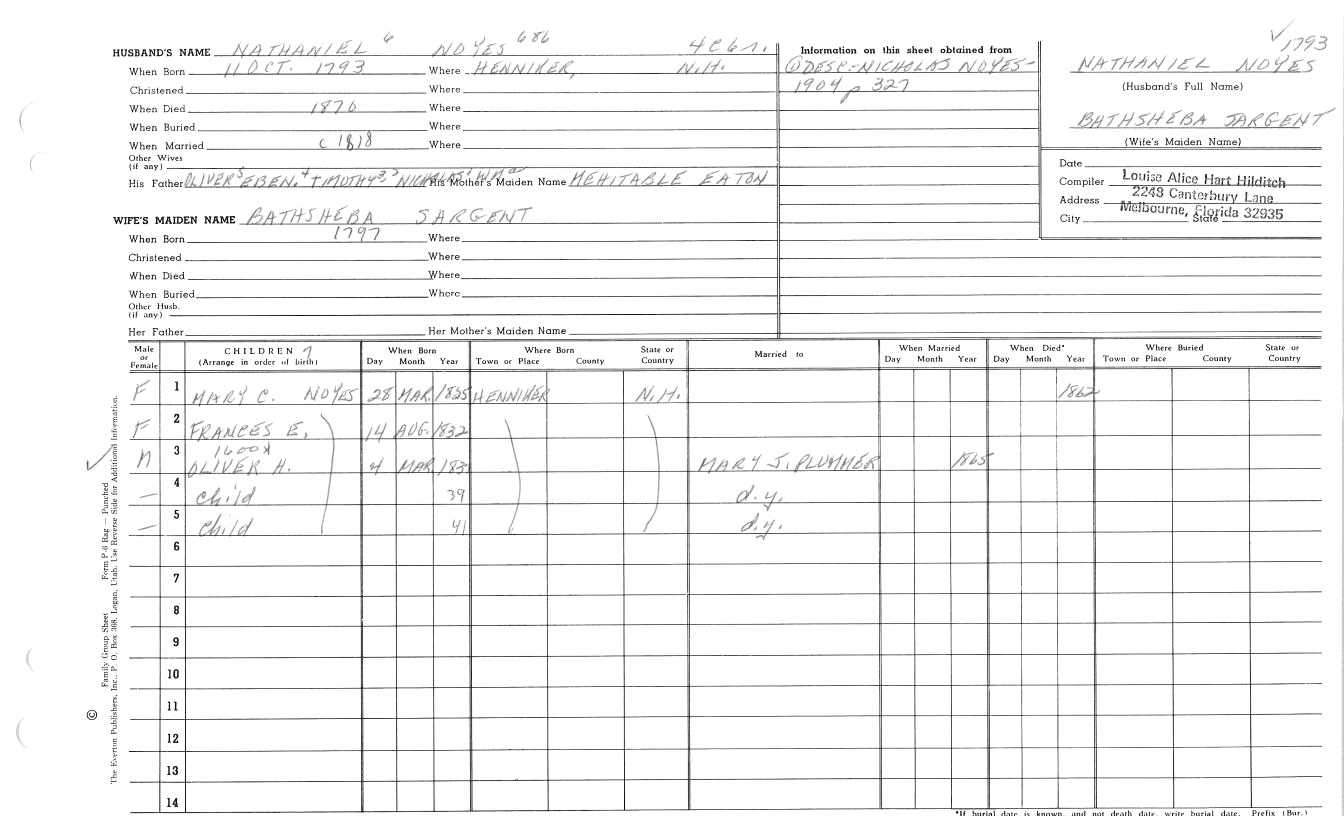 HUSBAND'S NAME NATHANIEL 6 NOYES 686 4 Ch.
When Born 11 OCT. 1793 Where HENNIKER, N.H.
Christened Where
When Died 1870 Where
When Buried Where
When Married c 1818 Where
Other Wives
(if any)
His Father OLIVER 5 EBEN. 4 TIMOTHY 3 NICHOLAS His Mother's Maiden Name MEHITABLE EATON
WIFE'S MAIDEN NAME BATHSHEBA SARGENT
When Born 1797 Where
Christened Where
When Died Where
When Buried Where
Other Husb.
(if any)
Her Father Her Mother's Maiden Name
Information on this sheet obtained from
① DESC.-NICHOLAS NOYES-
1904 p 327
1793
NATHANIEL NOYES
(Husband's Full Name)
BATHSHEBA SARGENT
(Wife's Maiden Name)
Date
Compiler Louise Alice Hart Hilditch
Address 2243 Canterbury Lane
City Melbourne, Florida 32935 State
Male or Female CHILDREN (Arrange in order of birth) When Born Day Month Year Where Born Town or Place County State or Country Married to When Married Day Month Year When Died* Day Month Year Where Buried Town or Place County State or Country
F 1 MARY C. NOYES 28 MAR. 1825 HENNIKER N.H. 1862
F 2 FRANCES E, 14 AUG. 1832
M 3 OLIVER H. 4 MAR 183 MARY J. PLUMMER 1865
— 4 child 39 d.y.
— 5 child 41 d.y.
6
7
8
9
10
11
12
13
14
*If burial date is known, and not death date, write burial date. Prefix (Bur.)
© Family Group Sheet Form P-8 Rag — Punched
The Everton Publishers, Inc., P. O. Box 368, Logan, Utah. Use Reverse Side for Additional Information.